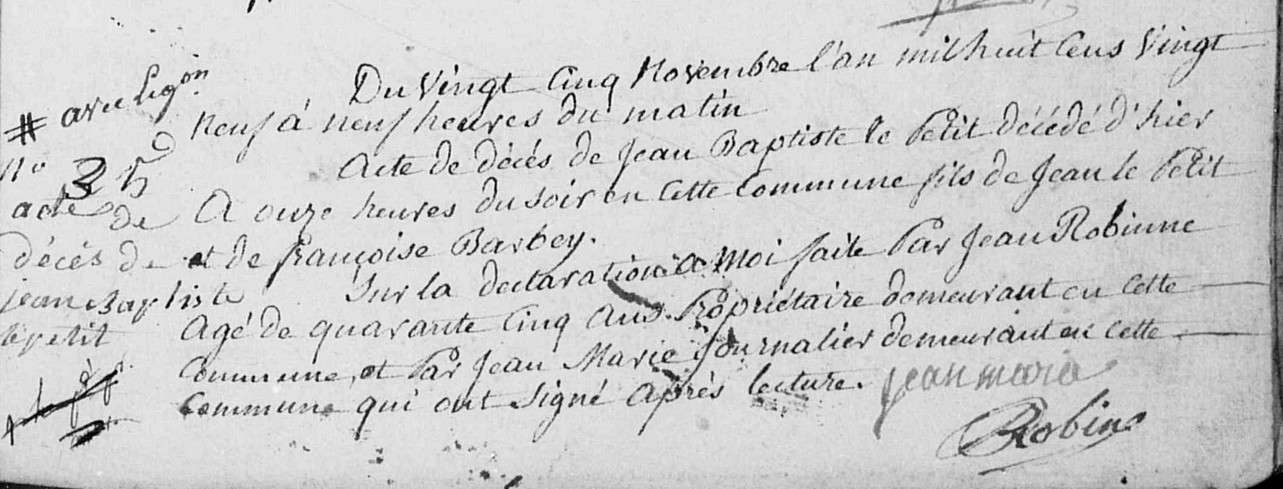 Du Vingt Cinq Novembre l'an mil huit Cens Vingt
Neuf à neuf heures du matin
Acte de décés de Jean Baptiste le Petit décédé d'hier
A onze heures du soir en Cette Commune fils de Jean le Petit
et de françoise Barbey.
Sur la declaration a Moi faite Par Jean Robinne
Agé de quarante Cinq ans Propriétaire demeurant en Cette
Commune, et Par Jean Marie Journalier demeurant en cette
Commune qui ont Signé Après lecture. jean marie
Robine
No 35
acte de
décés de
jean Baptiste
lepetit